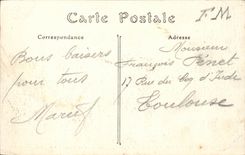 Carte Postale
F. M
Correspondance
Adresse
Bons baisers
pour tous
Marcel
Monsieur
François Pénet
17 Rue du Coq d'Inde
Toulouse